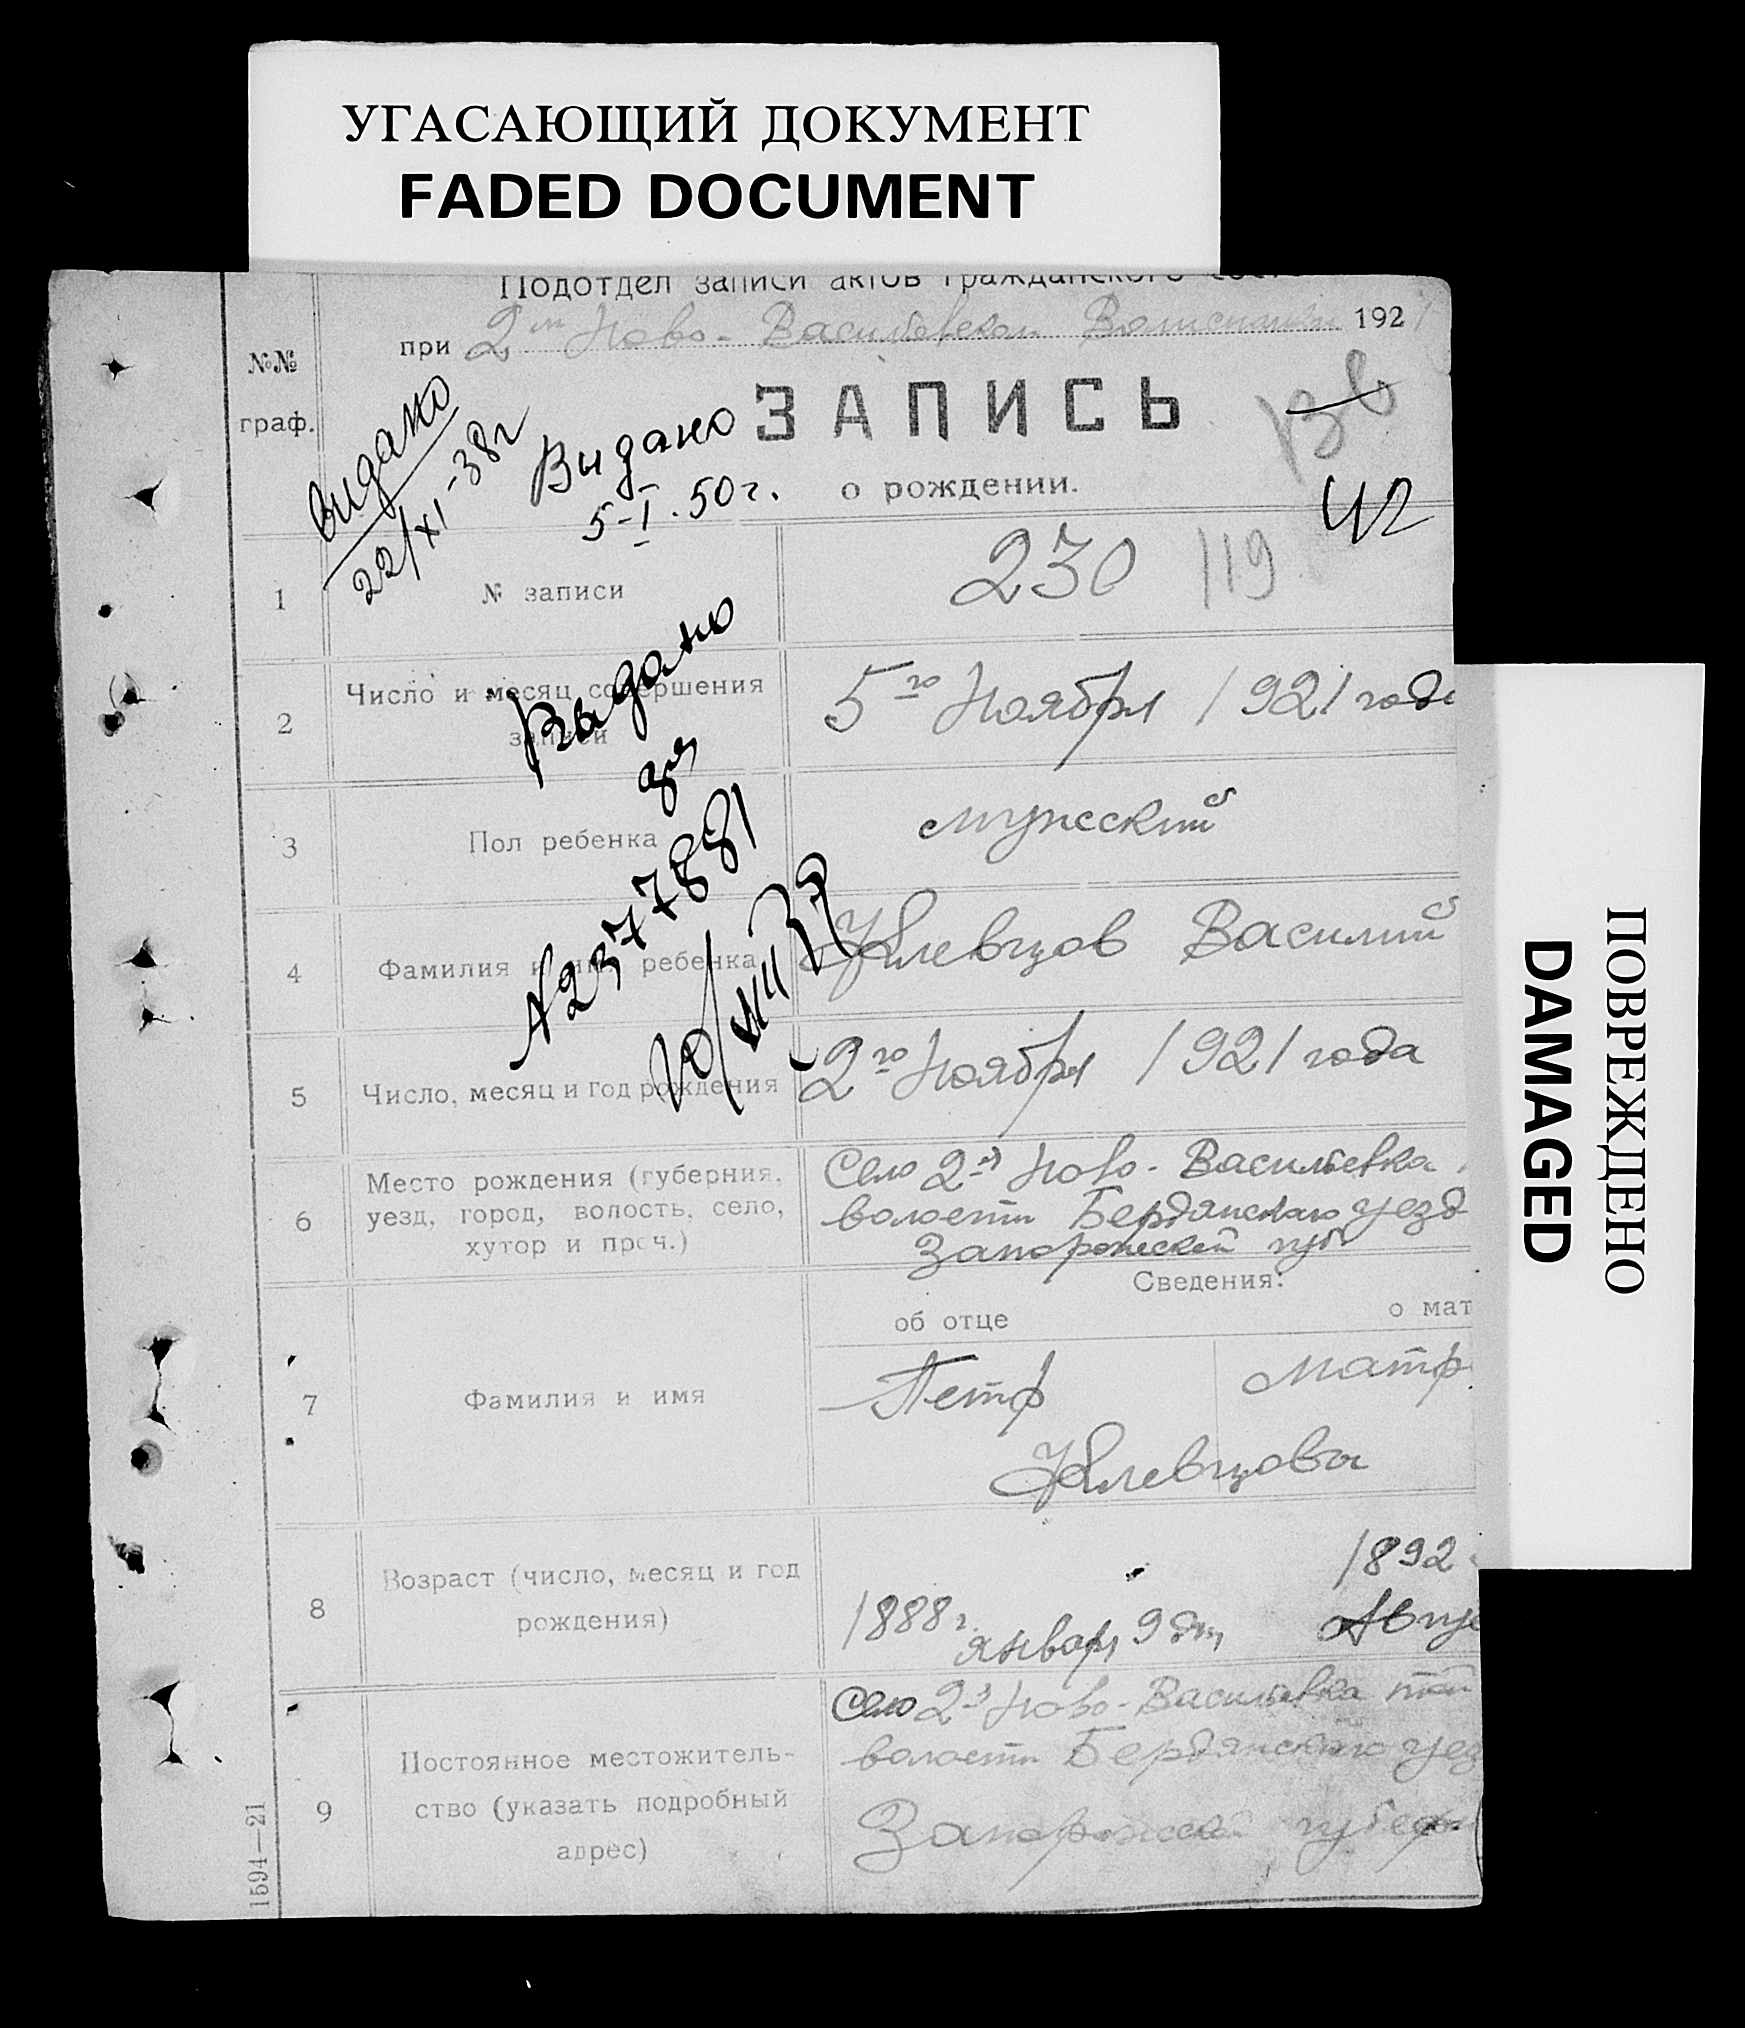 УГАСАЮЩИЙ ДОКУМЕНТ
FADED DOCUMENT
Подотдел записи актов гражданского
при 2 Ново-Васильевском 192
№№
граф.
видано
22/XI-38г
Видано
5-I.50г.
ЗАПИСЬ
о рождении.
42
1
№ записи
230
119
2
Число и месяц совершения
записи
5го Ноября 1921 года
Выдано
3
Пол ребенка
мужский
4
Фамилия и имя ребенка
Клевцов Василий
5
Число, месяц и год рождения
2го Ноября 1921 года
6
Место рождения (губерния,
уезд, город, волость, село,
хутор и проч.)
Село 2-я Ново-Васильевка
волости Бердянского уезд
Запорожской губ
Сведения:
об отце
о мат
7
Фамилия и имя
Петр
Матр
Клевцовы
8
Возраст (число, месяц и год
рождения)
1888г.
январ 9
1892
Авгус
9
Постоянное местожитель-
ство (указать подробный
адрес)
Село 2-я Ново-Васильевка той
волости Бердянского уез
Запорожской губер
1594—21
ПОВРЕЖДЕНО
DAMAGED